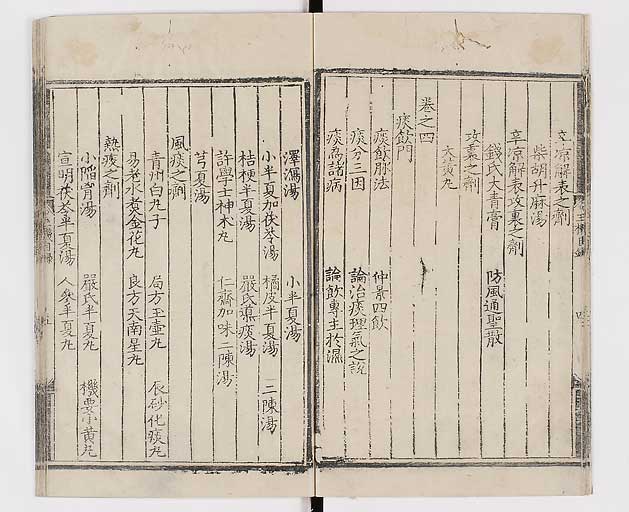 辛凉解表之劑
柴胡升麻湯
辛凉解表攻裏之劑
錢氏大青膏 防風通聖散
攻裏之劑
大黄丸
卷之四
痰飲門
痰飲脉法 仲景四飲
痰分三因 論治痰理氣之說
痰爲諸病 論飲專主於濕
澤瀉湯 小半夏湯
小半夏加茯苓湯 橘皮半夏湯 二陳湯
桔梗半夏湯 嚴氏導痰湯
許學士神术丸 仁齋加味二陳湯
芎夏湯
風痰之劑
青州白丸子 局方玉壷丸 辰砂化痰丸
易老水煮金花丸 良方天南星丸
熱痰之劑
小陷胷湯 嚴氏半夏丸 機要小黄丸
宣明茯苓半夏湯 人參半夏丸